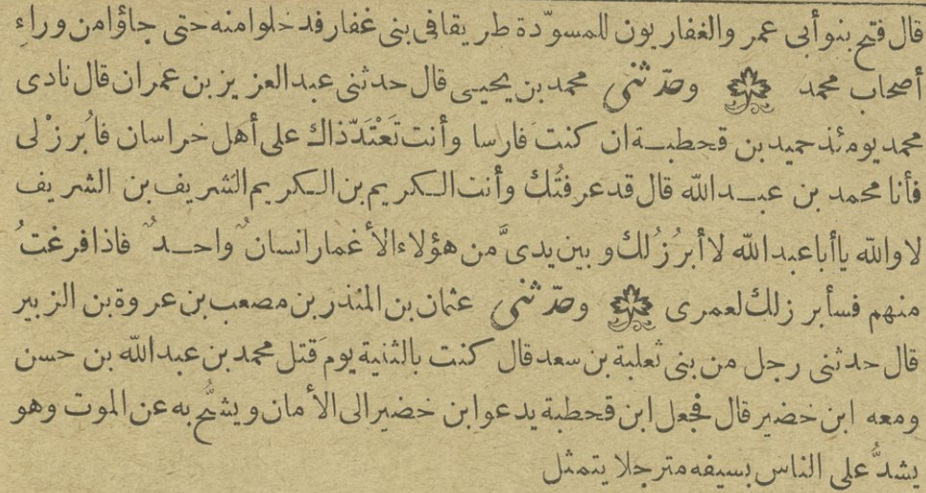 قال فتح بنو أبى عمر والغفاريون للمسوّدة طريقا فى بنى غفار فدخلوا منه حتى جاؤا من وراء
أصحاب محمد وحدّثنى محمد بن يحيى قال حدثنى عبد العزيز بن عمران قال نادى
محمد يومئذ حميد بن قحطبة ان كنت فارسا وأنت تَعْتَدّ ذاك على أهل خراسان فابُرزْ لى
فأنا محمد بن عبد الله قال قد عرفتُك وأنت الكريم بن الكريم الشريف بن الشريف
لا والله يا أبا عبد الله لا أبرُزُ لك وبين يدىَّ من هؤلاء الأغمار انسانٌ واحدٌ فاذا فرغتُ
منهم فسأبرز لك لعمرى وحدّثنى عثمان بن المنذر بن مصعب بن عروة بن الزبير
قال حدثنى رجل من بنى ثعلبة بن سعد قال كنت بالثنية يوم قتل محمد بن عبد الله بن حسن
ومعه ابن خضير قال فجعل ابن قحطبة يدعو ابن خضير الى الأمان ويشحُّ به عن الموت وهو
يشدُّ على الناس بسيفه مترجلا يتمثل